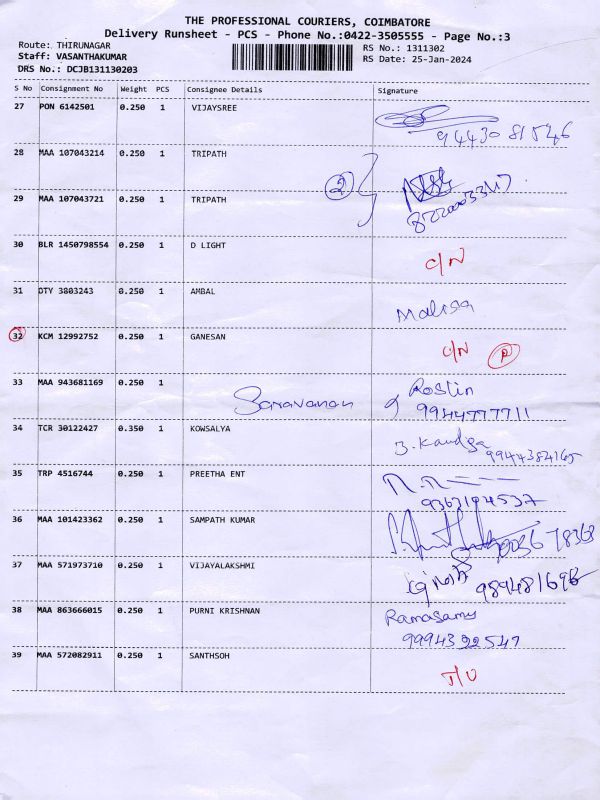 THE PROFESSIONAL COURIERS, COIMBATORE
Delivery Runsheet - PCS - Phone No.:0422-3505555 - Page No.:3
Route: THIRUNAGAR RS No.: 1311302
Staff: VASANTHAKUMAR RS Date: 25-Jan-2024
DRS No.: DCJB131130203
S No Consignment No Weight PCS Consignee Details Signature
27 PON 6142501 0.250 1 VIJAYSREE
94430 81546
28 MAA 107043214 0.250 1 TRIPATH
2
29 MAA 107043721 0.250 1 TRIPATH
30 BLR 1450798554 0.250 1 D LIGHT
C/N
31 DTY 3803243 0.250 1 AMBAL
32 KCM 12992752 0.250 1 GANESAN
C/N P
33 MAA 943681169 0.250 1
Saravanan Roslin
9944777711
34 TCR 30122427 0.350 1 KOWSALYA
9944384165
35 TRP 4516744 0.250 1 PREETHA ENT
9363194537
36 MAA 101423362 0.250 1 SAMPATH KUMAR
37 MAA 571973710 0.250 1 VIJAYALAKSHMI
989481696
38 MAA 863666015 0.250 1 PURNI KRISHNAN
Ramasamy
9994322547
39 MAA 572082911 0.250 1 SANTHSOH